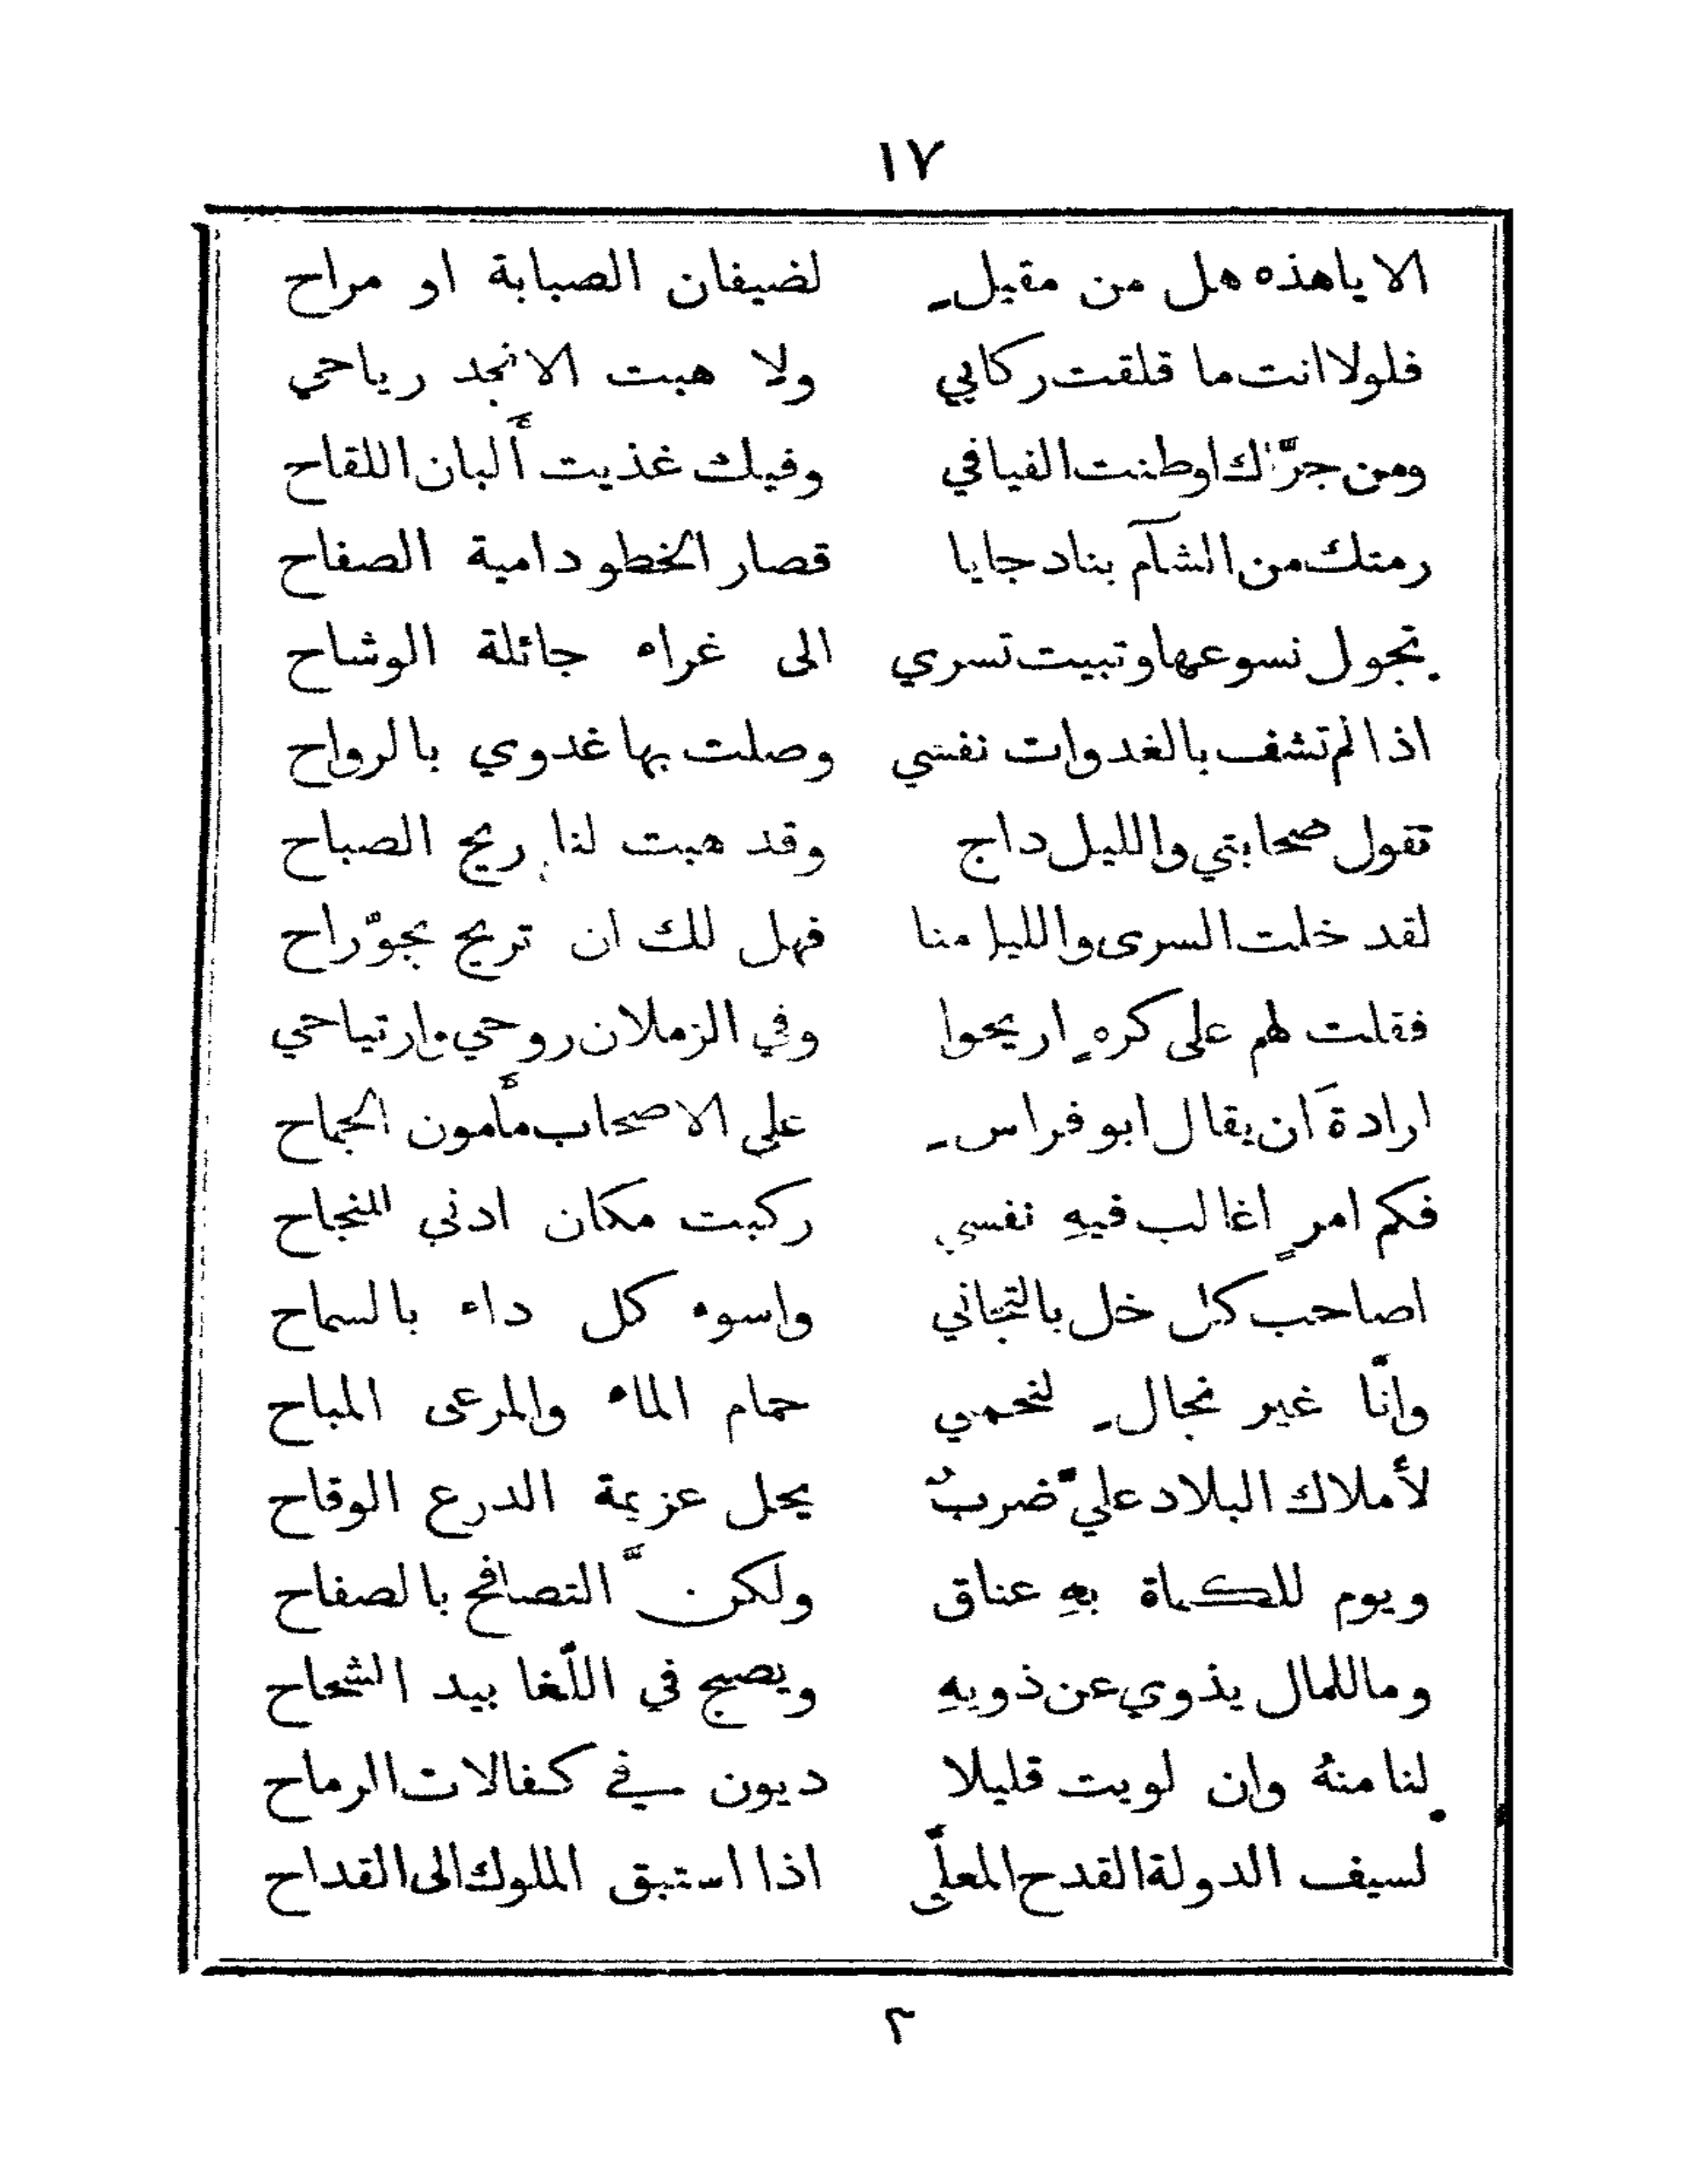 ١٧
الا ياهذه هل من مقيل لضيفان الصبابة او مراح
فلولا انت ما قلقت ركابي ولا هبت الا نجد رياحي
ومن جرَّاك اوطنت الفيافي وفيك غذيت أَلبان اللقاح
رمتك من الشآم بنا دجايا قصار الخطو دامية الصفاح
تجول نسوعها وتبيت تسري الى غراء جائلة الوشاح
اذا لم تشف بالغدوات نفسي وصلت بها غدوي بالرواح
تقول صحابتي والليل داج وقد هبت لنا ريح الصباح
لقد خلت السرى والليل منا فهل لك ان تريح بجوّ راح
فقلت لهم على كرهٍ اريحوا وفي الزملان روحي وارتياحي
ارادةَ ان يقال ابو فراس على الاصحاب مأَمون الجماح
فكم امرٍ اغالب فيهِ نفسي ركبت مكان ادنى المنجاح
اصاحب كل خل بالتجاني واسوء كل داء بالسماح
وانَّا غير نجال لنحمي حمام الماء والمرعى المباح
لأملاك البلاد عليَّ ضربٌ يحل عزيمة الدرع الوقاح
ويوم للكماة بهِ عناق ولكنَّ التصافح بالصفاح
وما للمال يذوي عن ذويهِ ويصبح في اللَّغا بيد الشحاح
لنا منهُ وان لويت قليلا ديون في كفالات الرماح
لسيف الدولة القدح المعلَّى اذا استبق الملوك الى القداح
٢